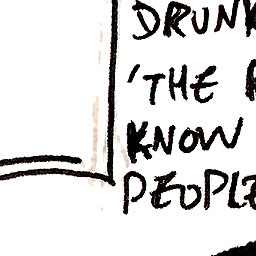 DRUNK
'THE
KNOW
PEOPLE